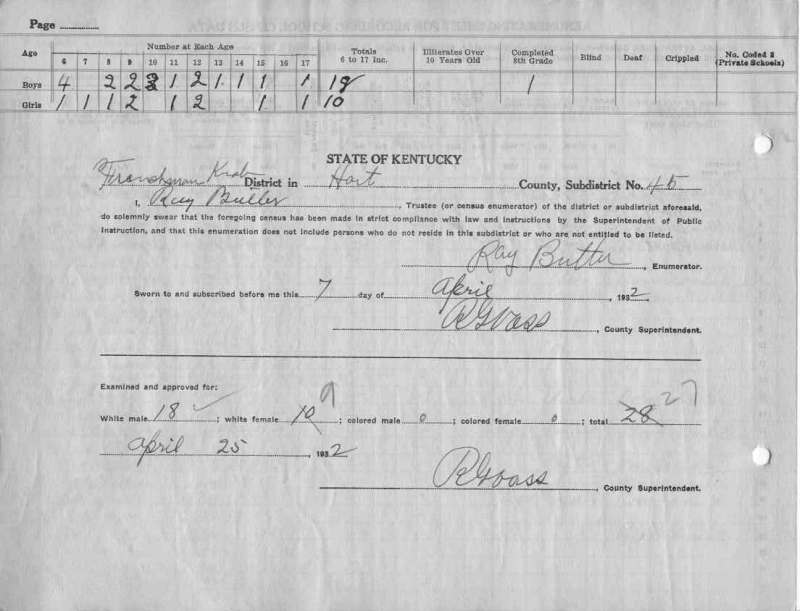 Page
Age Number at Each Age Totals 6 to 17 Inc. Illiterates Over 10 Years Old Completed 8th Grade Blind Deaf Crippled No. Coded 2 (Private Schools)
6 7 8 9 10 11 12 13 14 15 16 17
Boys 4 2 2 3 1 2 1 1 1 1 18 1
Girls 1 1 1 2 1 2 1 1 10
STATE OF KENTUCKY
Frenchman Knob District in Hart County, Subdistrict No. 45
I, Ray Butler, Trustee (or census enumerator) of the district or subdistrict aforesaid,
do solemnly swear that the foregoing census has been made in strict compliance with law and instructions by the Superintendent of Public
Instruction, and that this enumeration does not include persons who do not reside in this subdistrict or who are not entitled to be listed.
Ray Butler, Enumerator.
Sworn to and subscribed before me this 7 day of April, 1932.
R G Vass, County Superintendent.
Examined and approved for:
White male 18 ; white female 10 9 ; colored male 0 ; colored female 0 ; total 28 27
April 25, 1932
R G Vass, County Superintendent.